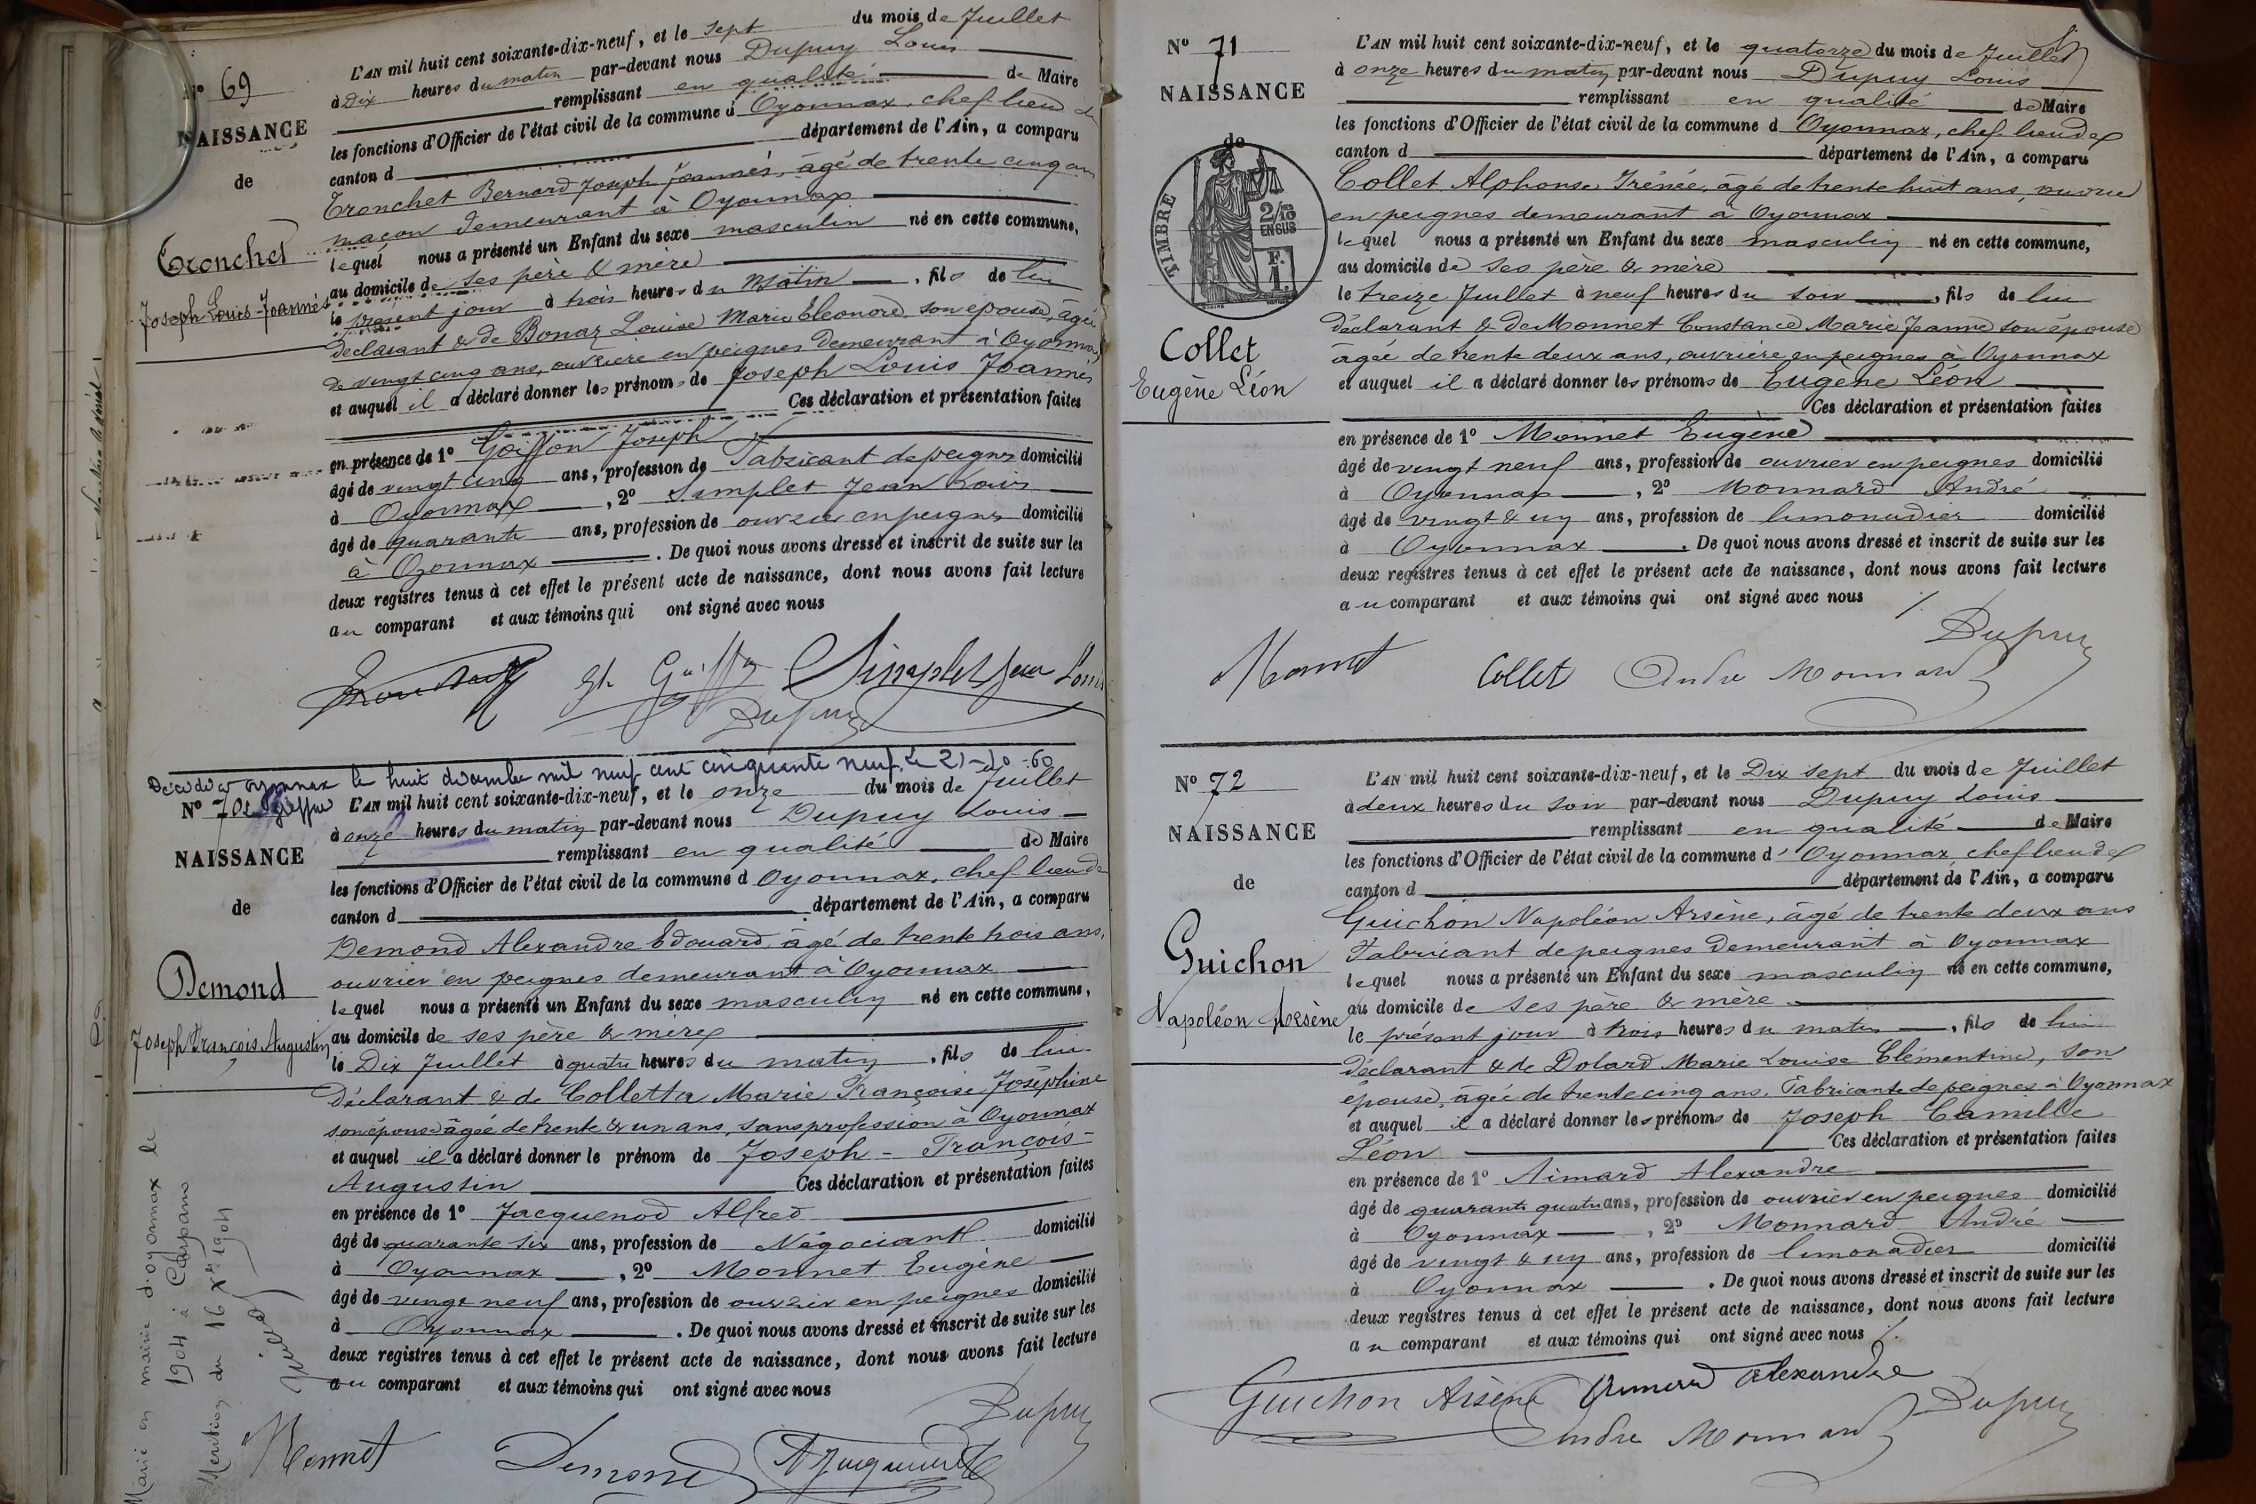 N° 69
NAISSANCE
de
Tronchet
Joseph Louis-Joannès
L'AN mil huit cent soixante-dix-neuf, et le sept du mois de Juillet
à Dix heures du matin par-devant nous Dupuy Louis
remplissant en qualité de Maire
les fonctions d'Officier de l'état civil de la commune d Oyonnax, chef lieu de
canton d département de l'Ain, a comparu
Tronchet Bernard Joseph Joannès, âgé de trente cinq ans
maçon demeurant à Oyonnax
lequel nous a présenté un Enfant du sexe masculin né en cette commune,
au domicile de ses père & mère
le présent jour à trois heures du matin, fils de lui
déclarant & de Bonaz Louise Marie Eléonore son épouse, âgée
de vingt cinq ans, ouvrière en peignes demeurant à Oyonnax
et auquel il a déclaré donner les prénoms de Joseph Louis Joannès
Ces déclaration et présentation faites
en présence de 1° Goiffon Joseph
âgé de vingt cinq ans, profession de Fabricant de peignes domicilié
à Oyonnax, 2° Simplet Jean Louis
âgé de quarante ans, profession de ouvrier en peignes domicilié
à Oyonnax. De quoi nous avons dressé et inscrit de suite sur les
deux registres tenus à cet effet le présent acte de naissance, dont nous avons fait lecture
au comparant et aux témoins qui ont signé avec nous
Simplet Jean Louis
Dupuy
Décédé à Oyonnax le huit décembre mil neuf cent cinquante neuf. Le 21-10-60
N° 70
NAISSANCE
de
Demond
Joseph François Augustin
L'AN mil huit cent soixante-dix-neuf, et le onze du mois de Juillet
à onze heures du matin par-devant nous Dupuy Louis
remplissant en qualité de Maire
les fonctions d'Officier de l'état civil de la commune d Oyonnax, chef lieu de
canton d département de l'Ain, a comparu
Demond Alexandre Edouard, âgé de trente trois ans,
ouvrier en peignes demeurant à Oyonnax
lequel nous a présenté un Enfant du sexe masculin né en cette commune,
au domicile de ses père & mère
le Dix Juillet à quatre heures du matin, fils de lui
déclarant & de Colletta Marie Françoise Joséphine
son épouse âgée de trente & un ans, sans profession à Oyonnax
et auquel il a déclaré donner le prénom de Joseph - François -
Augustin Ces déclaration et présentation faites
en présence de 1° Jacquenod Alfred
âgé de quarante six ans, profession de Négociant domicilié
à Oyonnax, 2° Monnet Eugène
âgé de vingt neuf ans, profession de ouvrier en peignes domicilié
à Oyonnax. De quoi nous avons dressé et inscrit de suite sur les
deux registres tenus à cet effet le présent acte de naissance, dont nous avons fait lecture
au comparant et aux témoins qui ont signé avec nous
Dupuy
Monnet Demond
Marié en mairie d'Oyonnax le
1904 à
Mention du 16 Xbre 1904
N° 71
NAISSANCE
de
TIMBRE
2/10 EN SUS
F. 1.
Collet
Eugène Léon
L'AN mil huit cent soixante-dix-neuf, et le quatorze du mois de Juillet
à onze heures du matin par-devant nous Dupuy Louis
remplissant en qualité de Maire
les fonctions d'Officier de l'état civil de la commune d Oyonnax, chef lieu de
canton d département de l'Ain, a comparu
Collet Alphonse Irénée, âgé de trente huit ans, ouvrier
en peignes demeurant à Oyonnax
lequel nous a présenté un Enfant du sexe masculin né en cette commune,
au domicile de ses père & mère
le treize Juillet à neuf heures du soir, fils de lui
déclarant & de Monnet Constance Marie Jeanne son épouse
âgée de trente deux ans, ouvrière en peignes à Oyonnax
et auquel il a déclaré donner les prénoms de Eugène Léon
Ces déclaration et présentation faites
en présence de 1° Monnet Eugène
âgé de vingt neuf ans, profession de ouvrier en peignes domicilié
à Oyonnax, 2° Monnard André
âgé de vingt & un ans, profession de limonadier domicilié
à Oyonnax. De quoi nous avons dressé et inscrit de suite sur les
deux registres tenus à cet effet le présent acte de naissance, dont nous avons fait lecture
au comparant et aux témoins qui ont signé avec nous
Dupuy
Monnet Collet Andre Monnard
N° 72
NAISSANCE
de
Guichon
Napoléon Arsène
L'AN mil huit cent soixante-dix-neuf, et le Dix sept du mois de Juillet
à deux heures du soir par-devant nous Dupuy Louis
remplissant en qualité de Maire
les fonctions d'Officier de l'état civil de la commune d' Oyonnax, chef lieu de
canton d département de l'Ain, a comparu
Guichon Napoléon Arsène, âgé de trente deux ans
Fabricant de peignes demeurant à Oyonnax
lequel nous a présenté un Enfant du sexe masculin né en cette commune,
au domicile de ses père & mère
le présent jour à trois heures du matin, fils de lui
déclarant & de Dolard Marie Louise Clémentine, son
épouse, âgée de trente cinq ans, Fabricante de peignes à Oyonnax
et auquel il a déclaré donner les prénoms de Joseph Camille
Léon Ces déclaration et présentation faites
en présence de 1° Aimard Alexandre
âgé de quarante quatre ans, profession de ouvrier en peignes domicilié
à Oyonnax, 2° Monnard André
âgé de vingt & un ans, profession de limonadier domicilié
à Oyonnax. De quoi nous avons dressé et inscrit de suite sur les
deux registres tenus à cet effet le présent acte de naissance, dont nous avons fait lecture
au comparant et aux témoins qui ont signé avec nous
Guichon Arsène Alexandre
Andre Monnard Dupuy